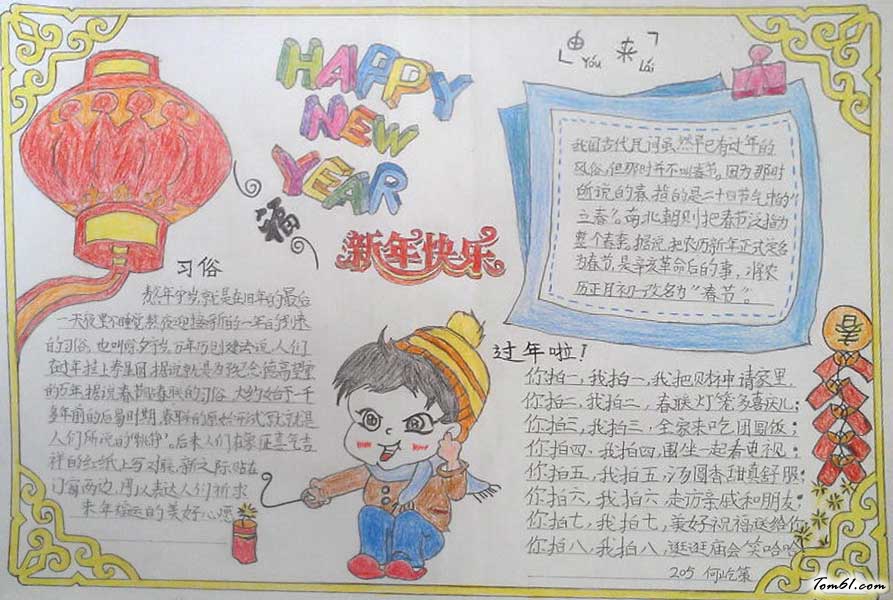 HAPPY
NEW
YEAR
福
新年快乐
由 来
Yóu Lái
我国古代民间虽然早已有过年的
风俗,但那时并不叫春节。因为那时
所说的春指的是二十四节气中的"
立春"。南北朝则把春节泛指为
整个春季。据说,把农历新年正式定名
为春节,是辛亥革命后的事,将农
历正月初一改名为"春节"。
习俗
熬年守岁,就是在旧年的最后
一天夜里不睡觉,熬夜迎接新的一年的到来
的习俗,也叫除夕守岁
在过年挂上寿星图,据说就是为纪念德高望重
的万年。据说春节贴春联的习俗,大约始于一千
多年前的后蜀时期,春联的原始形式就是
人们所说的"桃符"。后来人们在象征喜气吉
祥的红纸上写对联,新春之际贴在
门窗两边,用以表达人们祈求
来年福运的美好心愿
过年啦!
你拍一,我拍一,我把财神请家里,
你拍二,我拍二,春联灯笼多喜庆儿;
你拍三,我拍三,全家来吃团圆饭;
你拍四,我拍四,围坐一起看电视;
你拍五,我拍五,汤圆香甜真舒服;
你拍六,我拍六,走访亲戚和朋友;
你拍七,我拍七,美好祝福送给你
你拍八,我拍八,逛逛庙会笑哈哈!
205 何屹策
春
Tom61.com